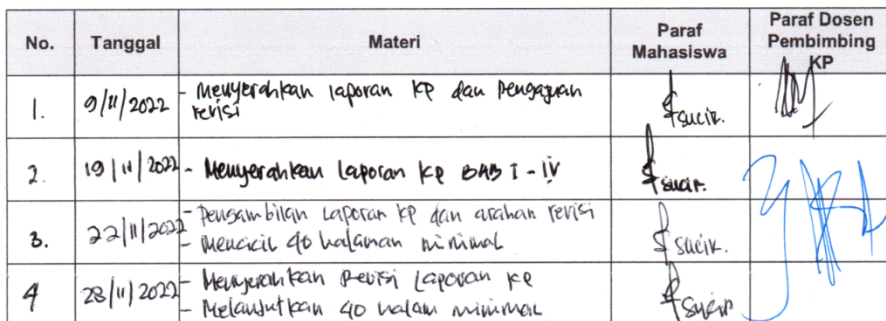 No. Tanggal Materi Paraf Mahasiswa Paraf Dosen Pembimbing KP
1. 9/11/2022 - Menyerahkan laporan KP dan Pengajuan
revisi
2. 19/11/2022 - Menyerahkan Laporan KP BAB I - IV
3. 22/11/2022 - Pengambilan Laporan KP dan arahan revisi
- Mencicil 40 halaman minimal
4 28/11/2022 - Menyerahkan Revisi Laporan KP
- Melanjutkan 40 halam minimal